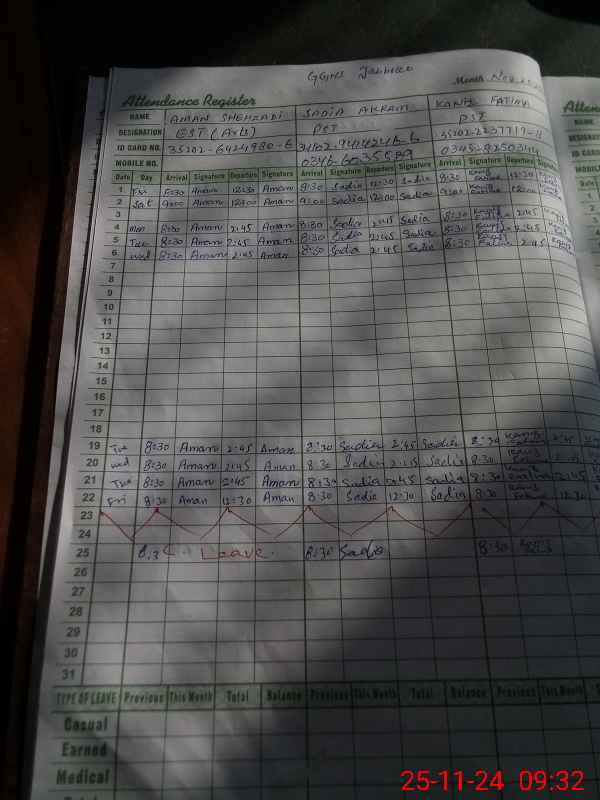 GGHS
Month Nov
Attendance Register
Atten
NAME AMAN SHEHZADI SADIA AKRAM KANIZ FATIMA NAME
DESIGNATION EST (Arts) PST PST DESIGNATION
ID CARD NO. 35202-6424980-6 ID CARD
MOBILE NO. MOBILE
Date Day Arrival Signature Departure Signature Arrival Signature Departure Signature Arrival Signature Departure Signature Date
1 Fri 8:30 Aman 12:30 Aman 8:30 Sadia 12:30 Sadia 8:30 Kaniz Fatima 12:30 1
2 Sat 9:00 Aman 12:00 Aman 9:00 Sadia 12:00 Sadia 9:00 Kaniz Fatima 12:00 2
3
4 Mon 8:30 Aman 2:45 Aman 8:30 Sadia 2:45 Sadia 8:30 Kaniz Fatima 2:45
5 Tue 8:30 Aman 2:45 Aman 8:30 Sadia 2:45 Sadia 8:30 Kaniz Fatima 2:45
6 Wed 8:30 Aman 2:45 Aman 8:30 Sadia 2:45 Sadia 8:30 Kaniz Fatima 2:45
7
8
9
10
11
12
13
14
15
16
17
18
19 Tue 8:30 Aman 2:45 Aman 8:30 Sadia 2:45 Sadia 8:30 Kaniz 2:45
20 Wed 8:30 Aman 2:45 Aman 8:30 Sadia 2:45 Sadia 8:30 Kaniz
21 8:30 Aman 2:45 Aman 8:30 Sadia 2:45 Sadia 8:30 Kaniz Fatima 2:45
22 Fri 8:30 Aman 12:30 Aman 8:30 Sadia 12:30 Sadia 8:30 Fatima 12:30
23
24
25 Leave 8:30 Sadia 8:30
26
27
28
29
30
31
TYPE OF LEAVE Previous This Month Total Balance Previous This Month Total Balance Previous This Month
Casual
Earned
Medical
25-11-24 09:32